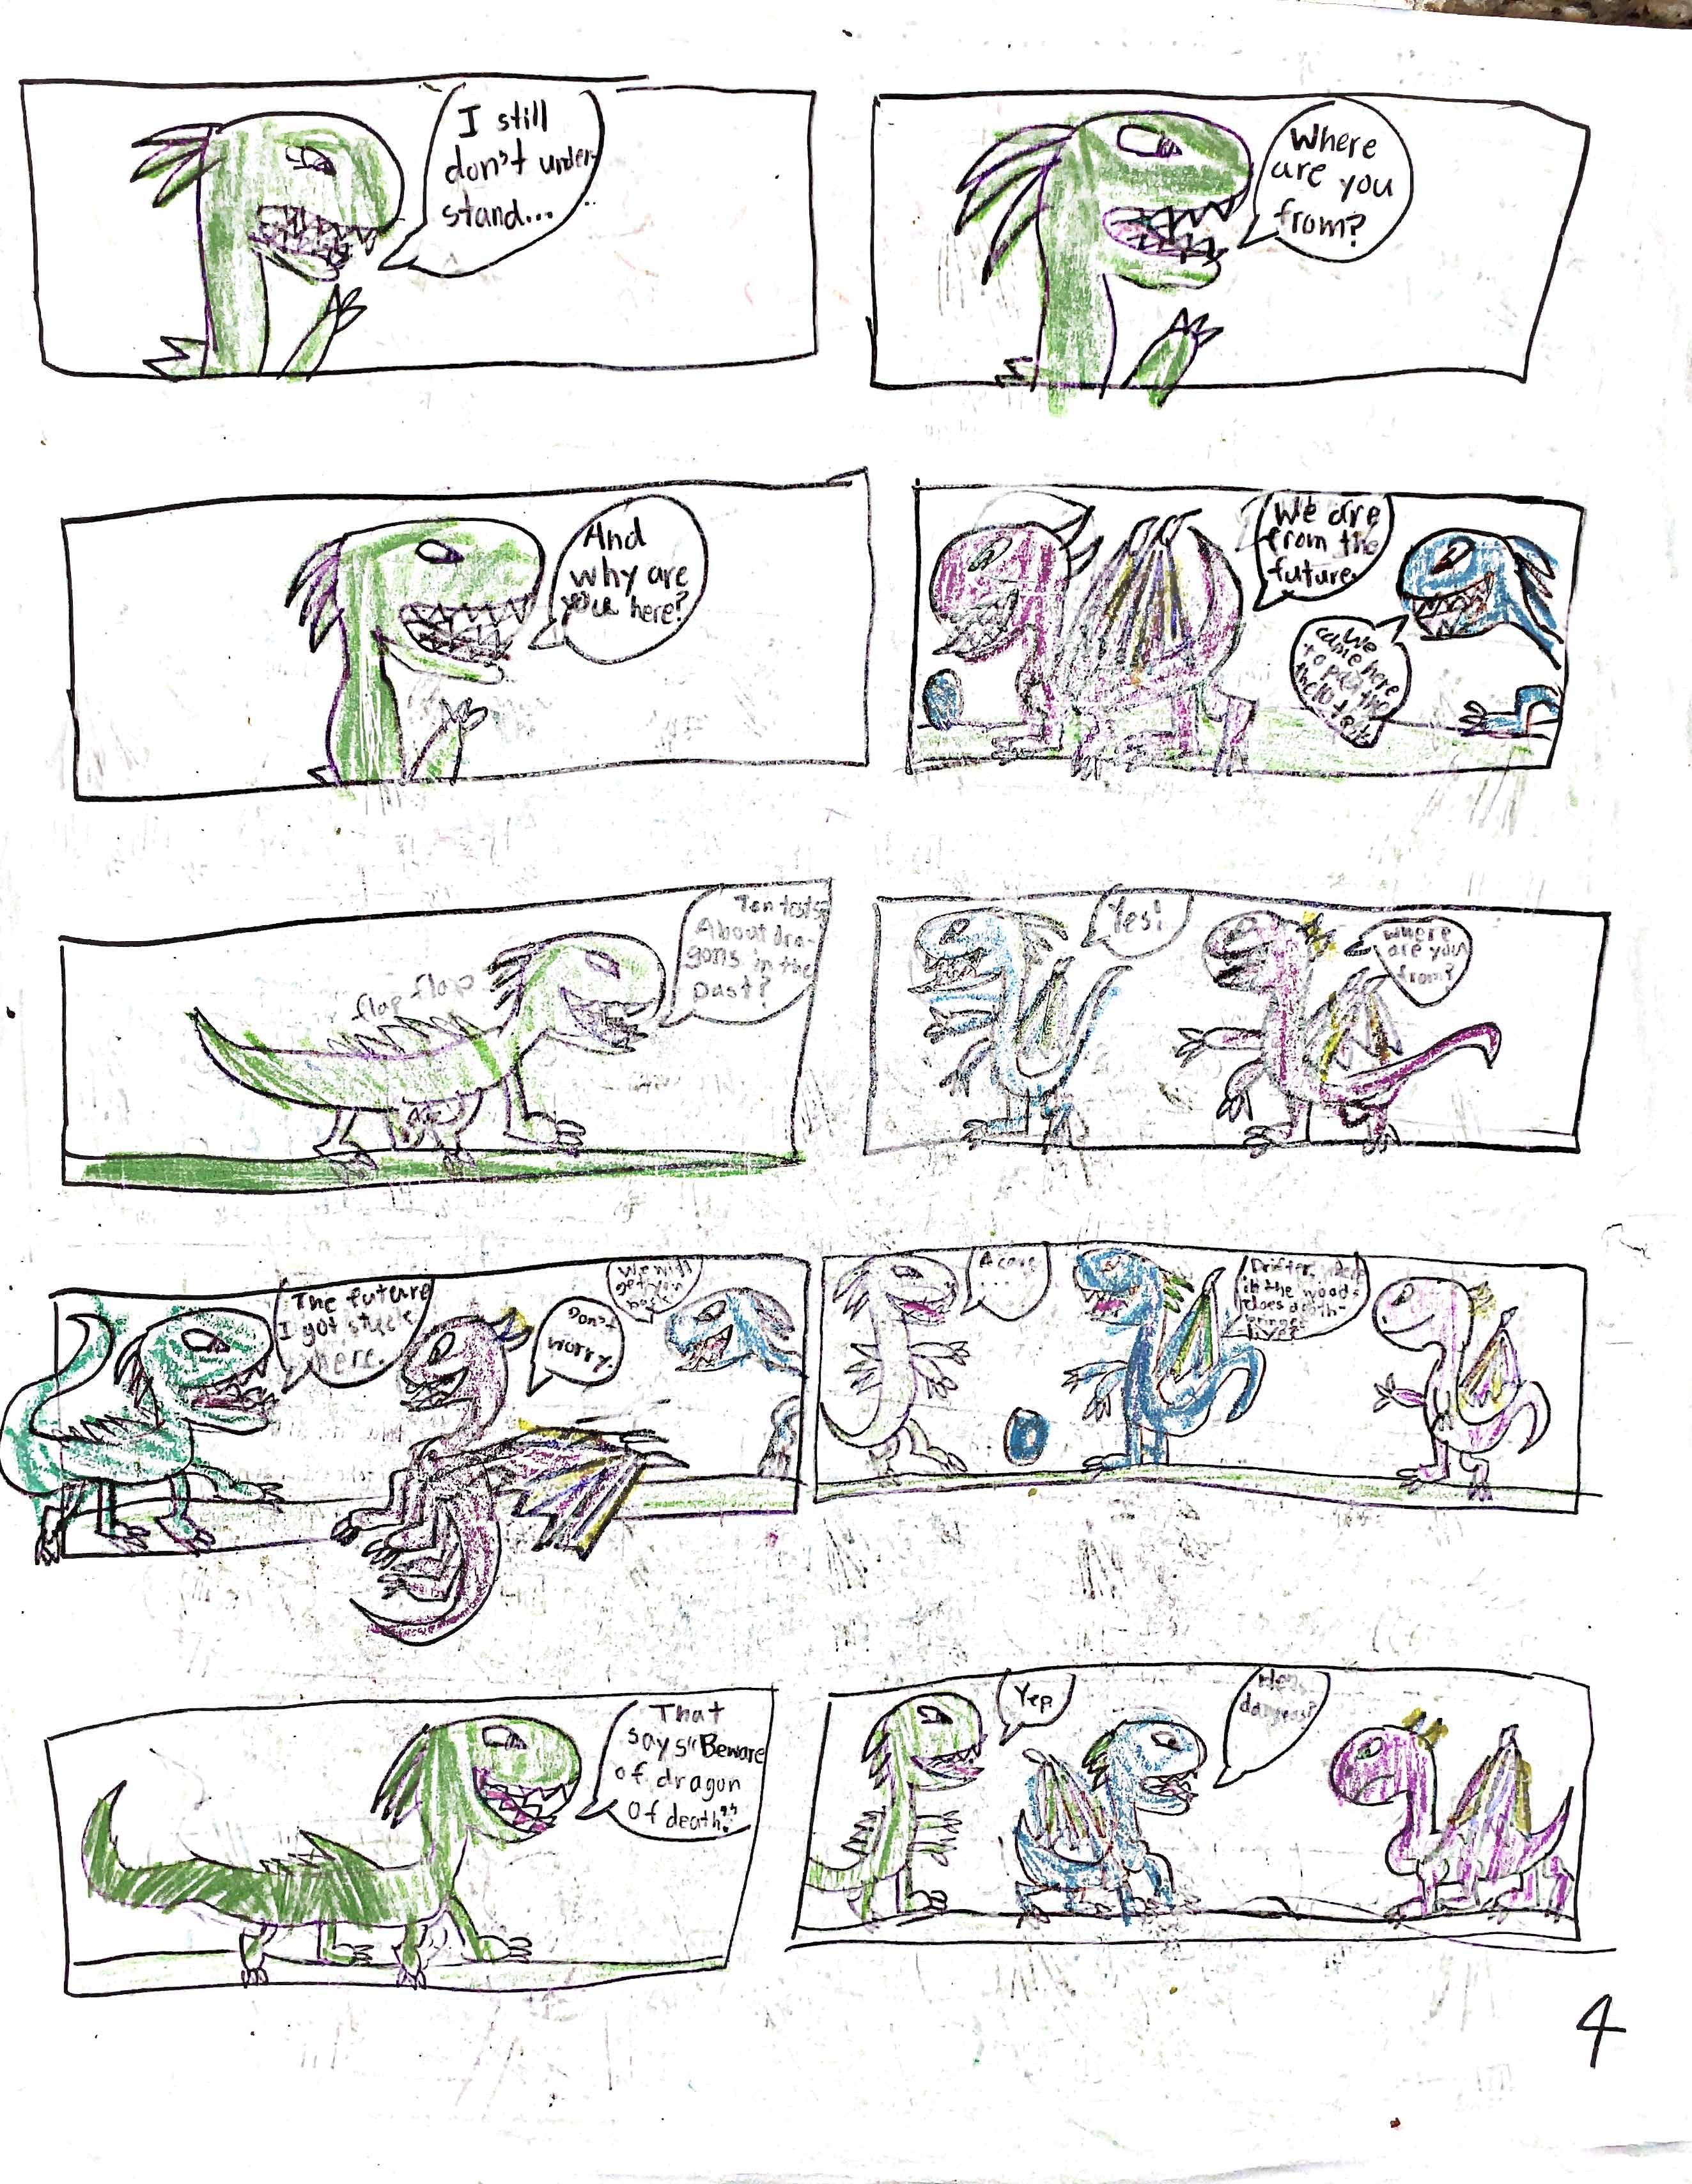 I still
don't under-
stand...
Where
are you
from?
And
why are
you here?
We are
from the
future.
We
came here
to pass the
the 10 tests
flap flap
Ten tests?
About dra-
gons in the
past?
Yes!
Where
are you
from?
The future
I got stuck
here.
Don't
worry.
We will
get you
back in
A cave
...
Drifter,
in the woods
does death-
bringer
live?
That
says "Beware
of dragon
of death!"
Yep
dangeros?
4